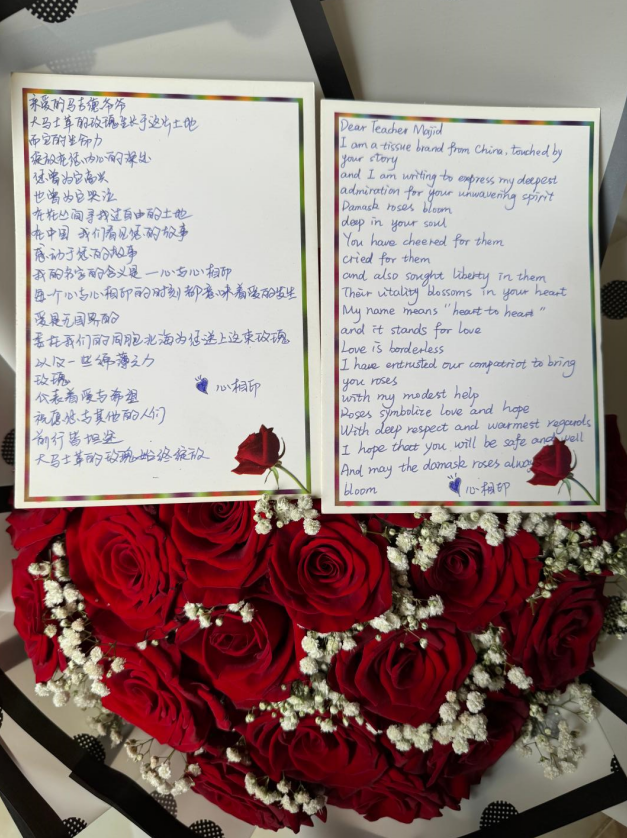 亲爱的马吉德爷爷
大马士革的玫瑰生长于这片土地
而它的生命力
绽放在您内心的深处
您曾为它高歌
也曾为它哭泣
在花丛间寻找过自由的土地
在中国 我们看见您的故事
感动于您的故事
我的名字的含义是——心与心相印
每个心与心相印的时刻 都意味着爱的发生
爱是无国界的
委托我们的同胞北海为您送上这束玫瑰
以及一些绵薄之力
玫瑰
代表着爱与希望
心相印
祝愿您与其他的人们
前行皆坦途
大马士革的玫瑰始终绽放
Dear Teacher Majid
I am a tissue brand from China, touched by
your story
and I am writing to express my deepest
admiration for your unwavering spirit
Damask roses bloom
deep in your soul
You have cheered for them
cried for them
and also sought liberty in them
Their vitality blossoms in your heart
My name means "heart to heart"
and it stands for love
Love is borderless
I have entrusted our compatriot to bring
you roses
with my modest help
Roses symbolize love and hope
With deep respect and warmest regards
I hope that you will be safe and well
And may the damask roses always
bloom 心相印